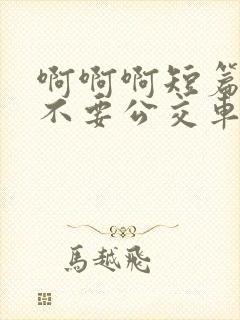 啊啊啊短篇
不要公交车
馬越飛